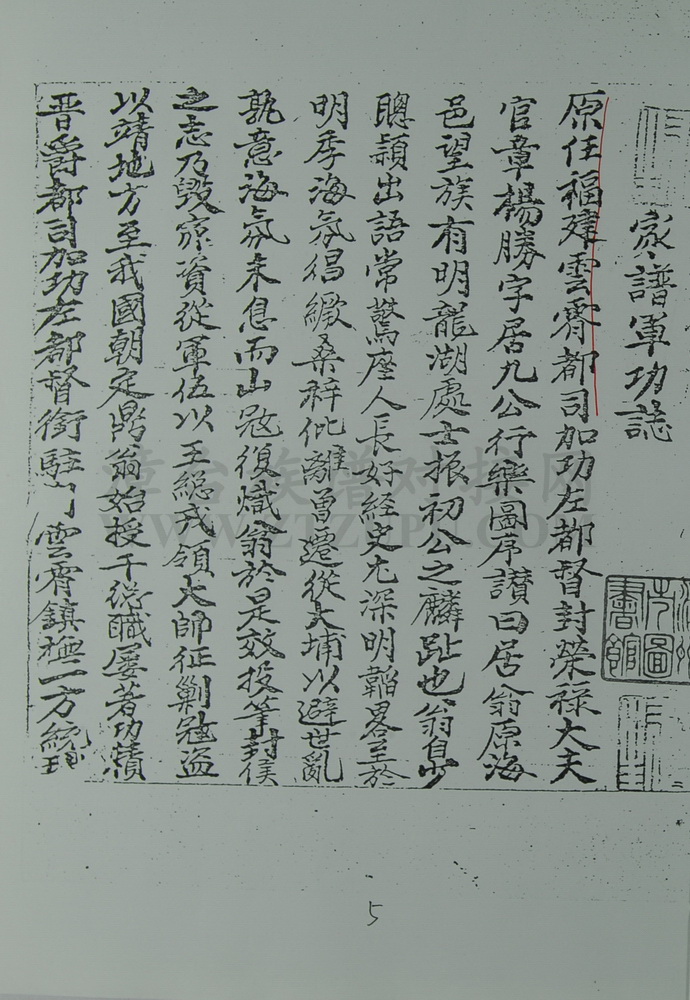 家譜軍功誌
原任福建雲霄都司加功左都督封榮祿大夫
官章楊勝字居九公行樂圖序讚曰居翁原海
邑望族有明龍湖處士振初公之麟趾也翁自少
聰穎出語常驚座人長好經史尤深明韜畧至於
明季海氛猖緻桑梓仳離曾遷從大埔以避世亂
孰意海氛未息而山冦復熾翁於是效投筆封侯
之志乃毀家資從軍伍以王總戎領大師征剿冦盜
以靖地方至我國朝定鼎翁始授千總職屢著功績
晋爵都司加功左都督銜駐 雲霄鎮極一方統
書館
圖
漳台族谱对接网
WWW.ZTZUPU.COM
5